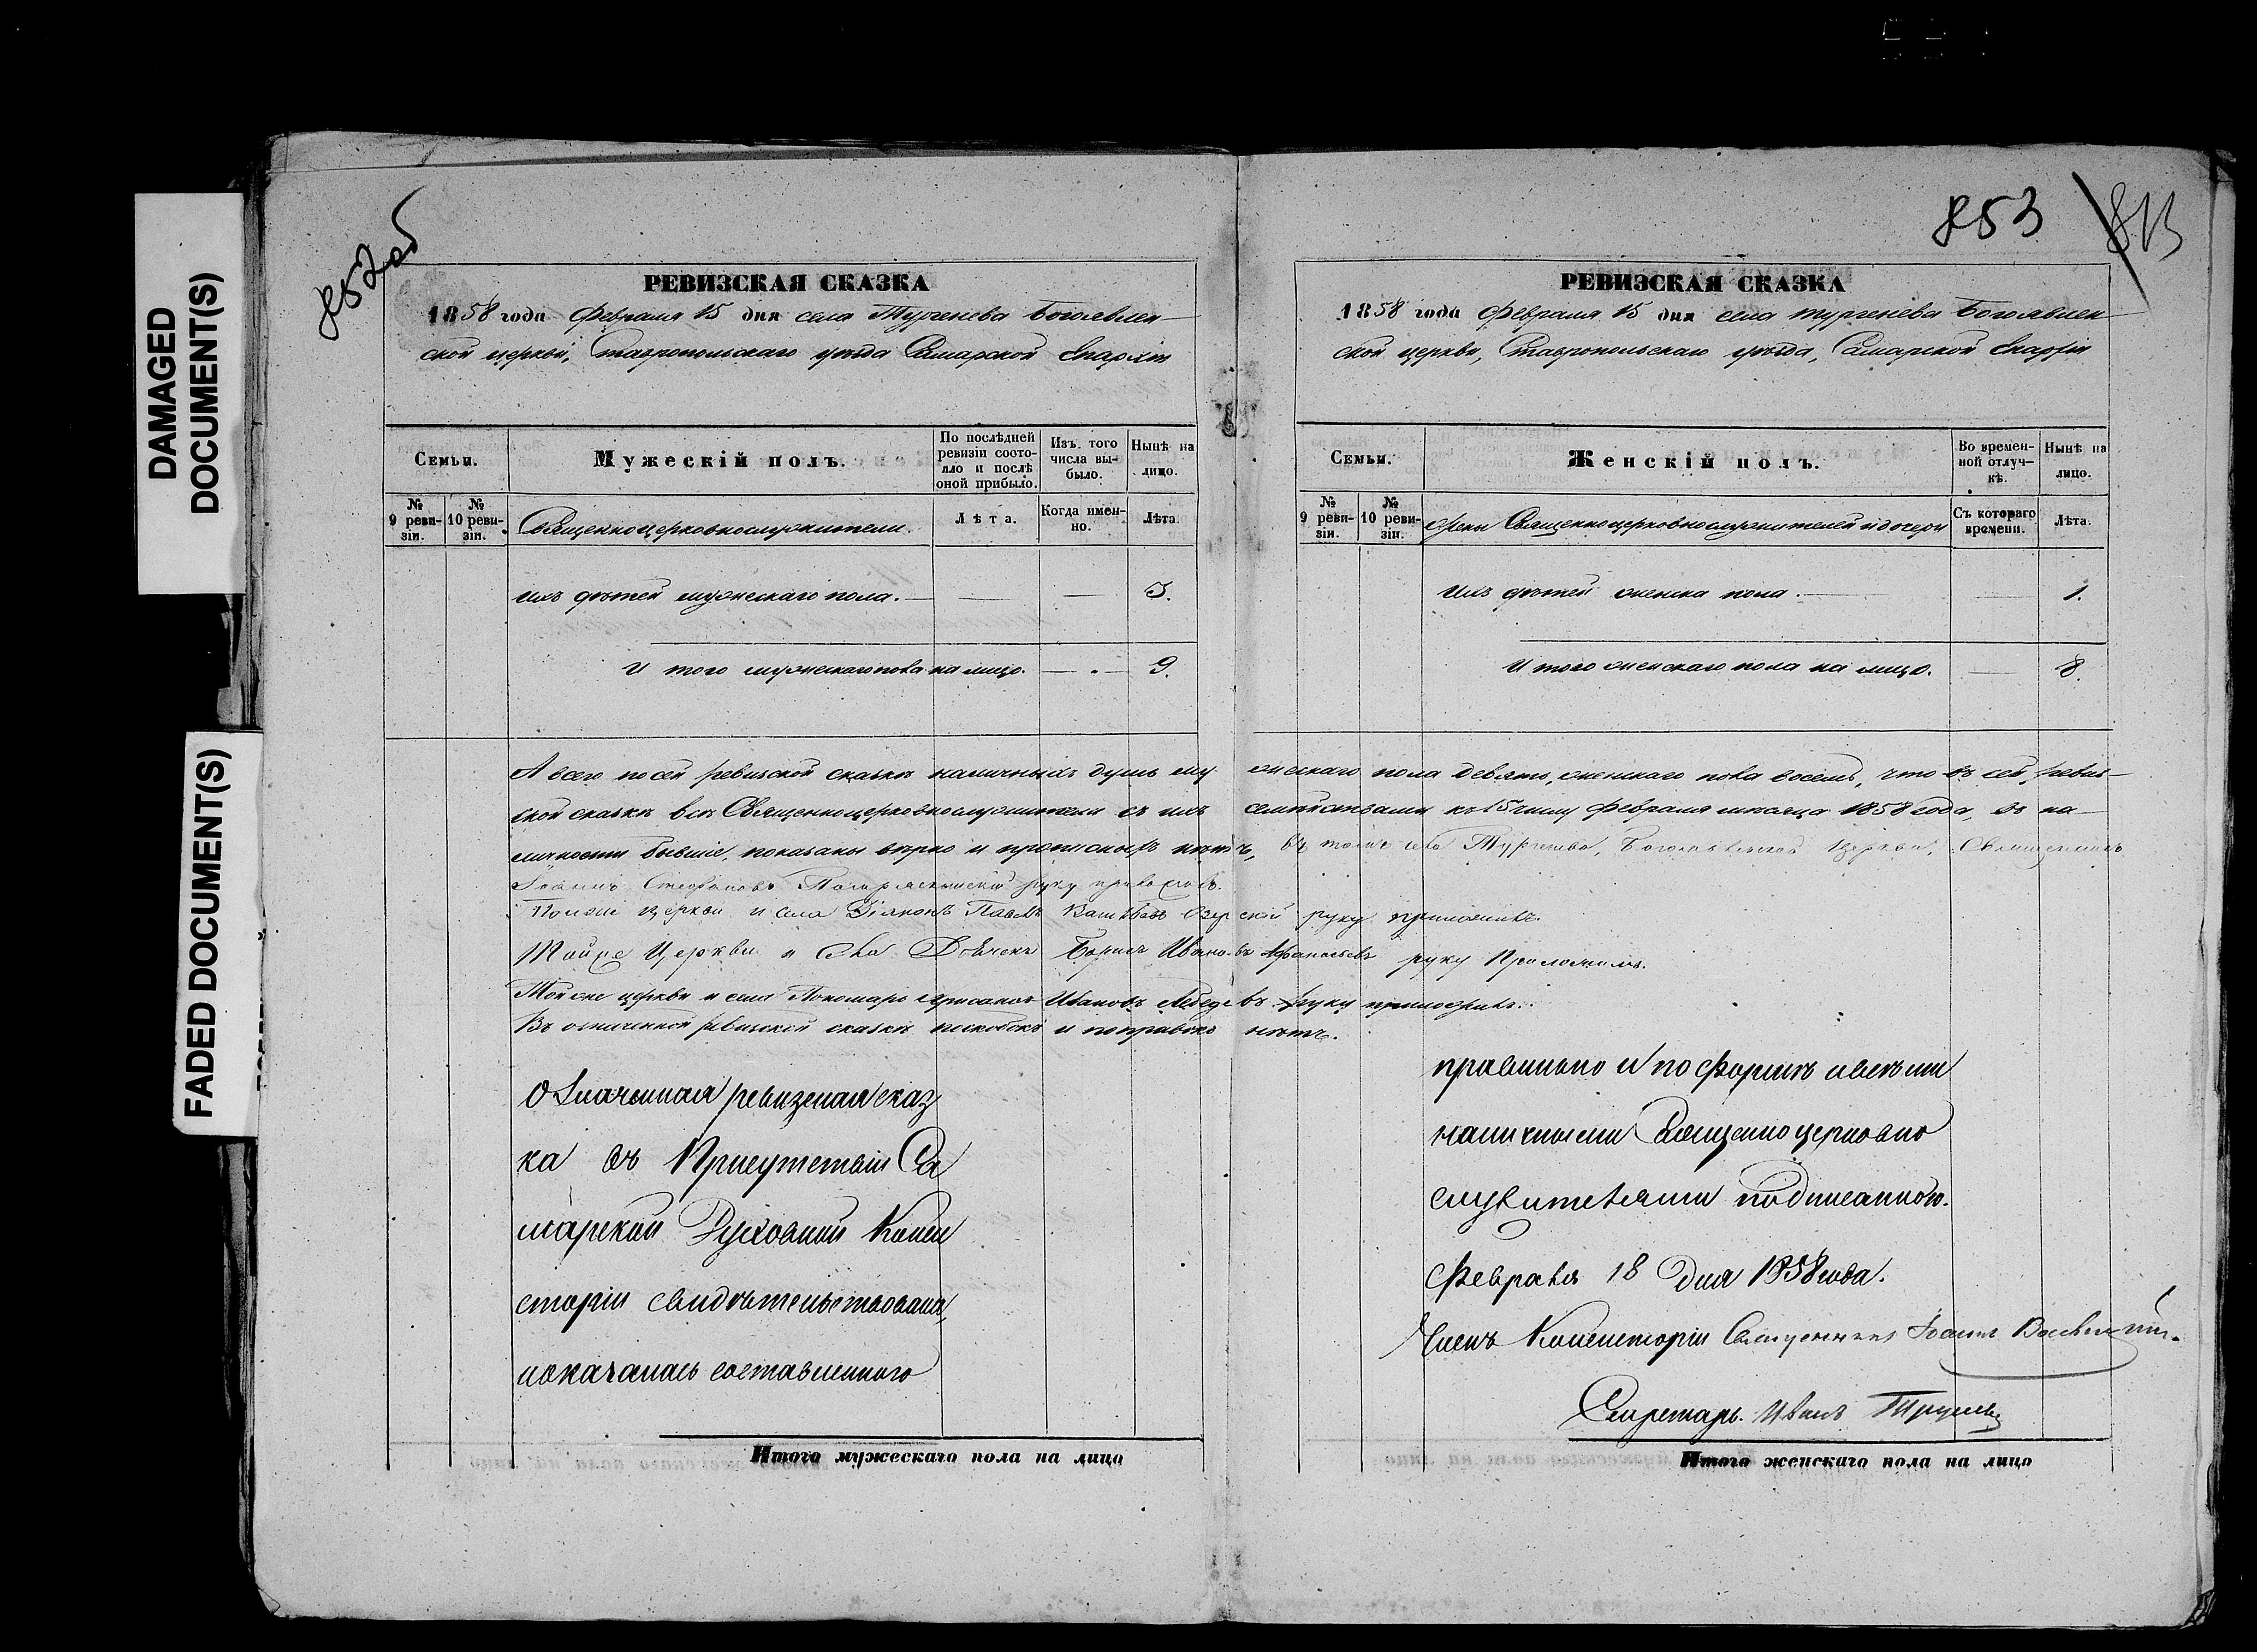 DAMAGED
DOCUMENT(S)
FADED DOCUMENT(S)
852 об
РЕВИЗСКАЯ СКАЗКА
1858 года Февраля 15 дня села Тургенева Богоявлен-
ской церкви, Ставропольскаго уѣзда Самарской Епархіи
Семьи.
Мужескій полъ.
По послѣдней ревизіи состояло и послѣ оной прибыло.
Изъ того числа выбыло.
Нынѣ на лицо.
№ 9 реви-зіи.
№ 10 реви-зіи.
Священноцерковнослужители.
Лѣта.
Когда имен-но.
Лѣта.
ихъ дѣтей мужескаго пола. — — — 3.
И того мужескаго пола на лицо. — — 9.
853 813
РЕВИЗСКАЯ СКАЗКА
1858 года Февраля 15 дня села Тургенева Богоявлен-
ской церкви, Ставропольскаго уѣзда, Самарской Епархіи
Семьи.
Женскій полъ.
Во времен-ной отлуч-кѣ.
Нынѣ на лицо.
№ 9 реви-зіи.
№ 10 реви-зіи.
Жены Священноцерковнослужителей и дочери
Съ котораго времени.
Лѣта.
ихъ дѣтей женска пола. — — 1.
И того женскаго пола на лицо. — 8.
А всего по сей ревизской сказкѣ наличныхъ душъ му жескаго пола девять, женскаго пола восемь, что въ сей ревиз-
ской сказкѣ всѣ Священноцерковнослужители съ ихъ семействами къ 15 числу Февраля мѣсяца 1858 года, въ на-
личности бывшіе, показаны вѣрно и прописныхъ нѣтъ, въ томъ села Тургенева, Богоявленской церкви, Священникъ
Іоаннъ Стефановъ руку приложилъ.
Тойже церкви и села Діаконъ Павелъ Озерской руку приложилъ.
Тойже Церкви и села Дьячекъ Борисъ Ивановъ Афанасьевъ руку Приложилъ.
Тойже церкви и села Пономарь Ивановъ Лебедевъ руку приложилъ.
Въ означенной ревизской сказкѣ подскобокъ и поправокъ нѣтъ.
Означенная ревизская сказ
ка въ Присутствіи Са
марской Духовной Конси
сторіи свидѣтельствована,
оказалась составленного
правильно и по формѣ и всѣми
наличными Священно церковно
служителями подписанною.
Февраля 18 дня 1858 года.
Членъ Консисторіи Священникъ Іоаннъ
Секретарь. Иванъ
Итого мужескаго пола на лицо
Итого женскаго пола на лицо